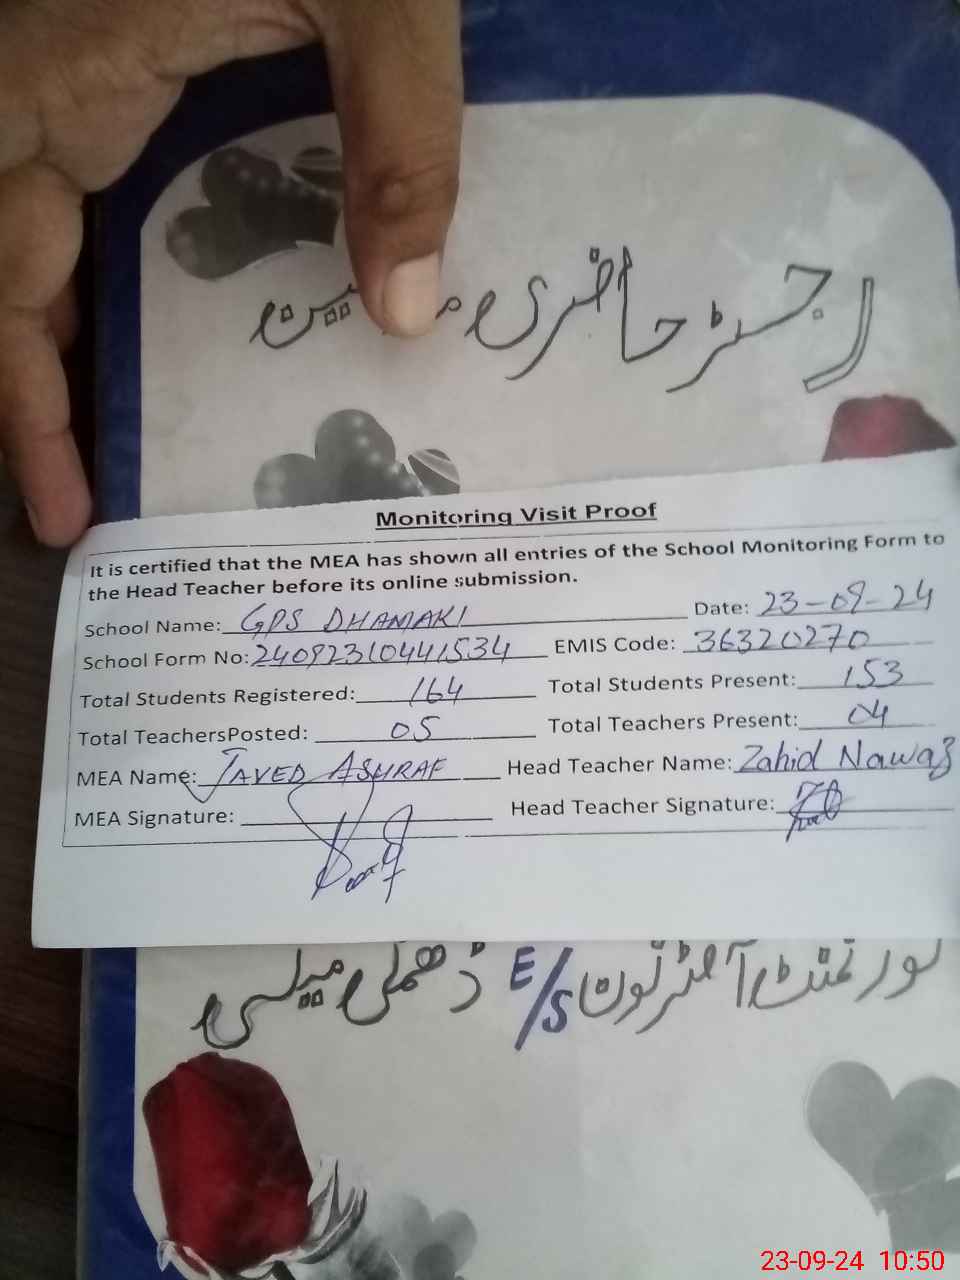 رجسٹر حاضری
Monitoring Visit Proof
It is certified that the MEA has shown all entries of the School Monitoring Form to
the Head Teacher before its online submission.
School Name: GPS DHAMAKI Date: 23-09-24
School Form No: 24092310441534 EMIS Code: 36320270
Total Students Registered: 164 Total Students Present: 153
Total TeachersPosted: 05 Total Teachers Present: 04
MEA Name: JAVED ASHRAF Head Teacher Name: Zahid Nawaz
MEA Signature: Head Teacher Signature:
گورنمنٹ آفٹرنون E/S ڈھمکی میلسی
23-09-24 10:50